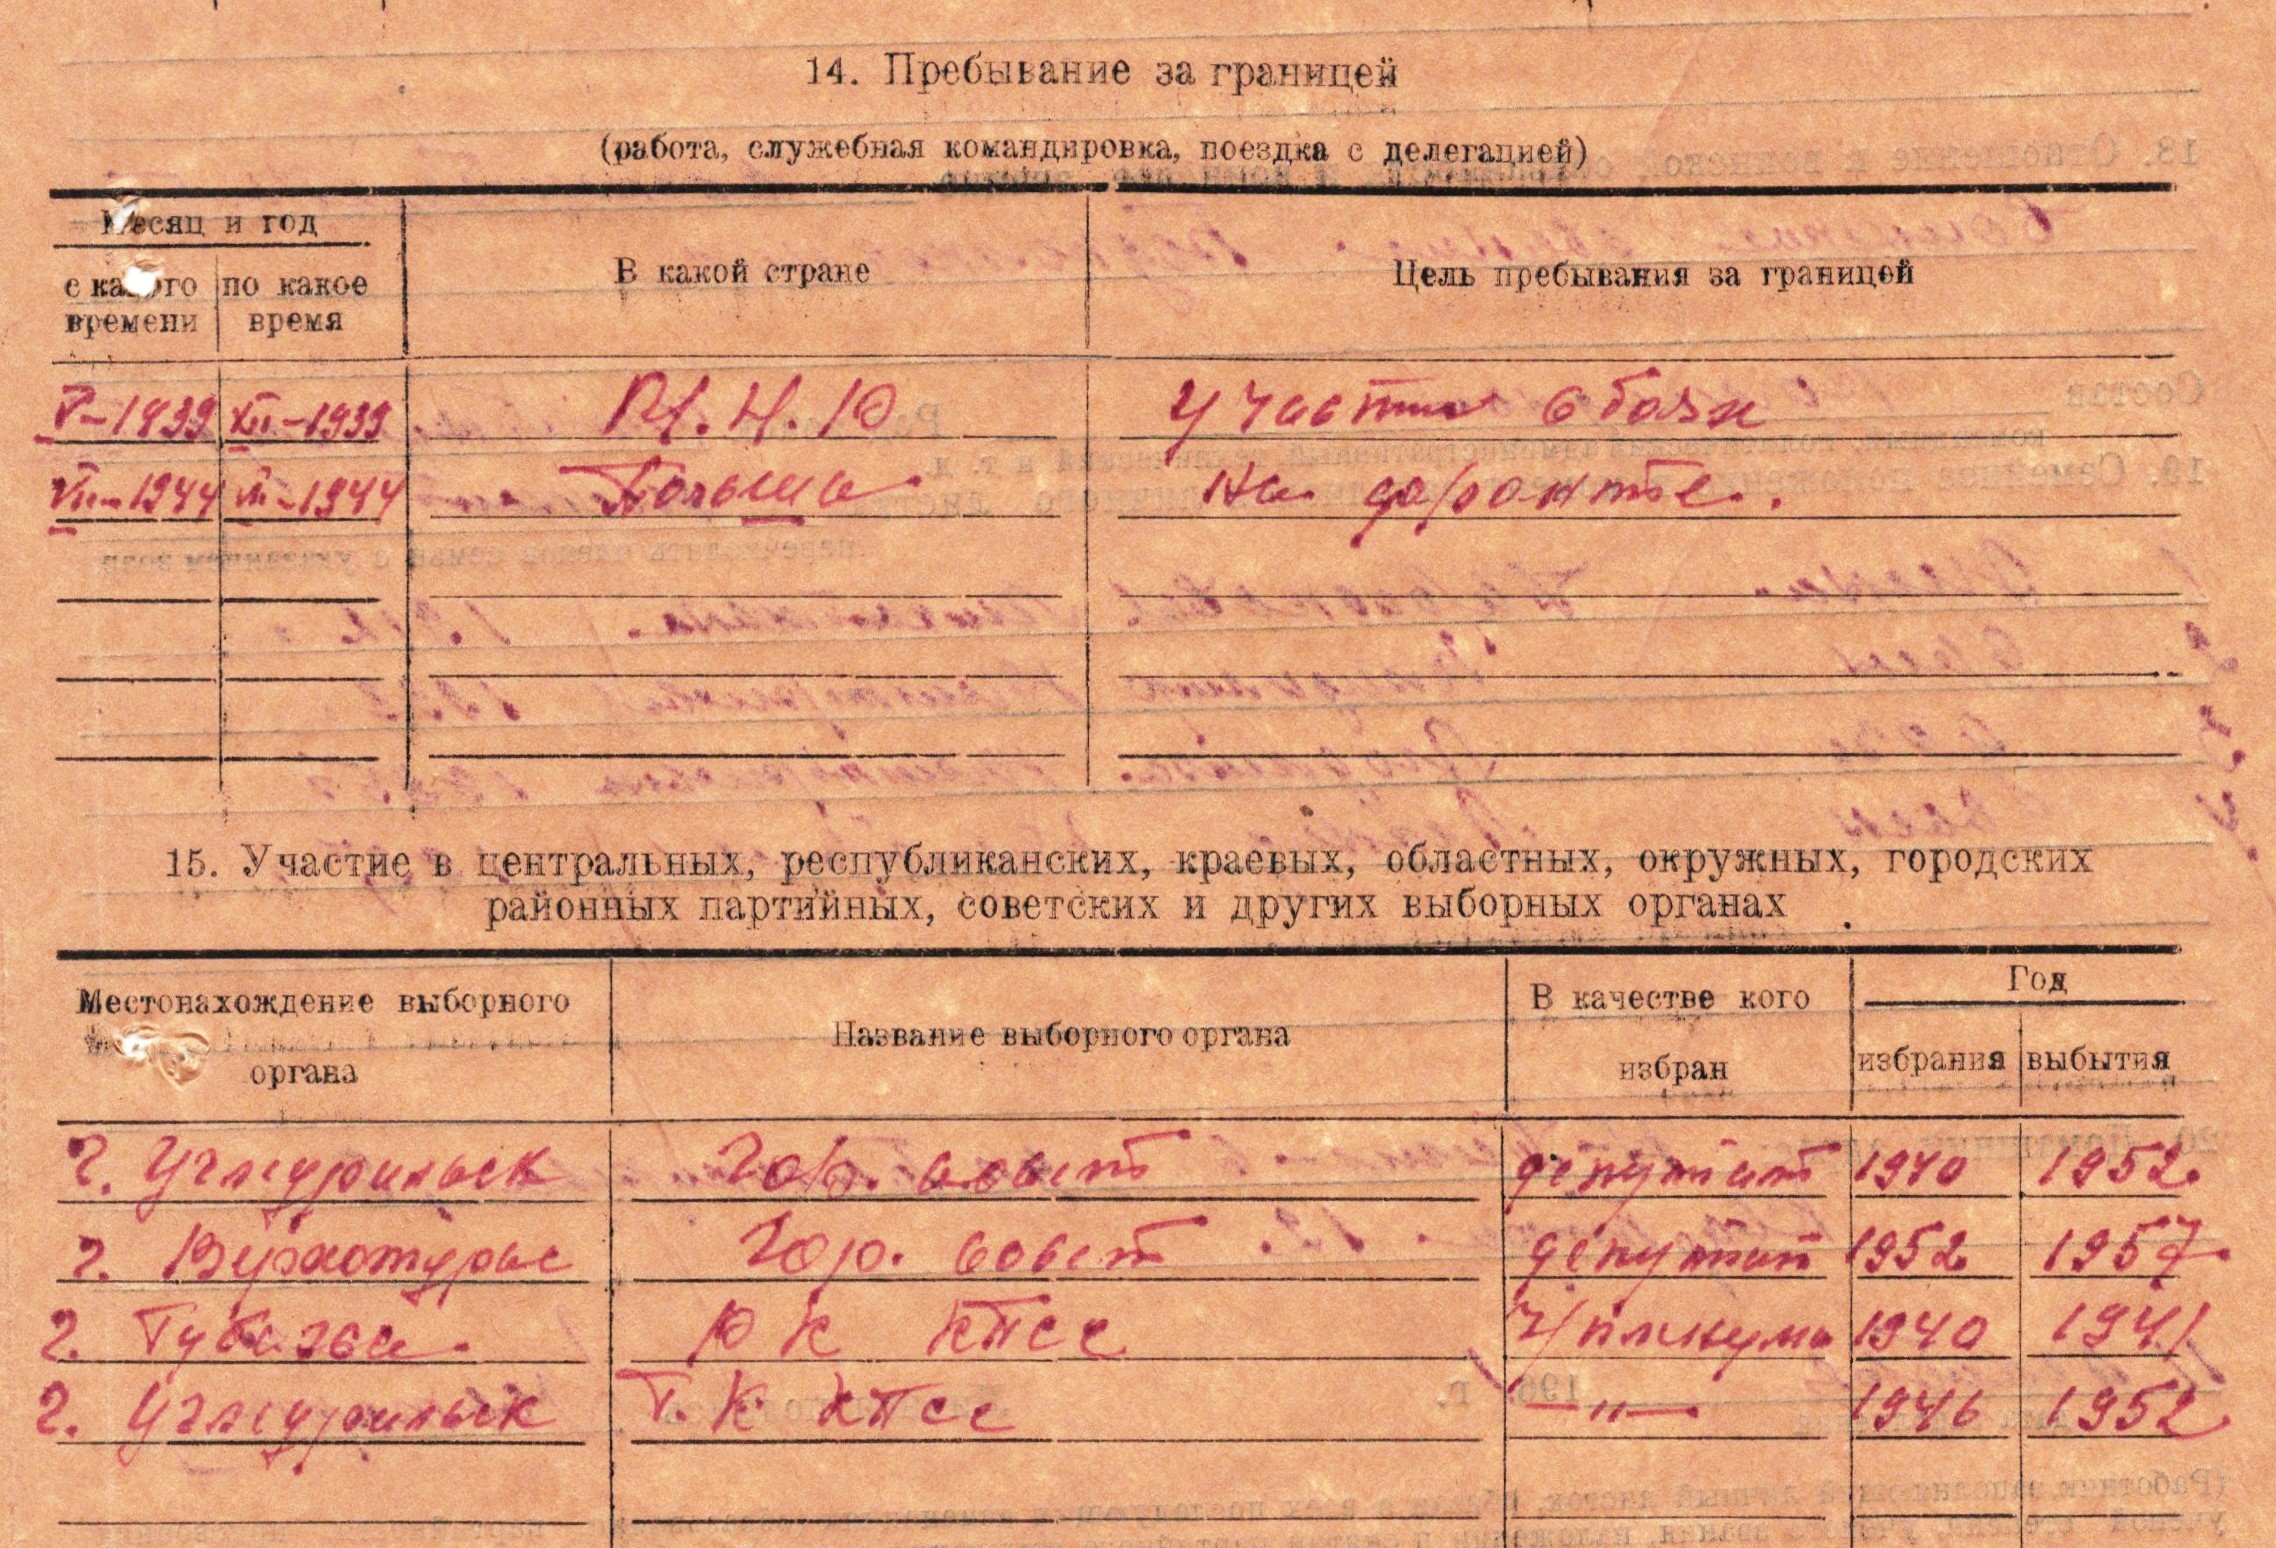 14. Пребывание за границей
(работа, служебная командировка, поездка с делегацией)
Месяц и год
с какого времени
по какое время
В какой стране
Цель пребывания за границей
V–1939 XII–1939 М.Н.Ю Участн в боях
VII–1944 –1944 Польша. на фронте.
15. Участие в центральных, республиканских, краевых, областных, окружных, городских
районных партийных, советских и других выборных органах
Местонахождение выборного
органа
Название выборного органа
В качестве кого
избран
Год
избрания
выбытия
г. Углеуральск Гор. совет депутат 1940 1952.
г. Верхотурье Гор. совет депутат 1952 1957.
г. Губаха. РК КПСС Чл пленума 1940 1941
г. Углеуральск Г.К КПСС –"–. 1946 1952